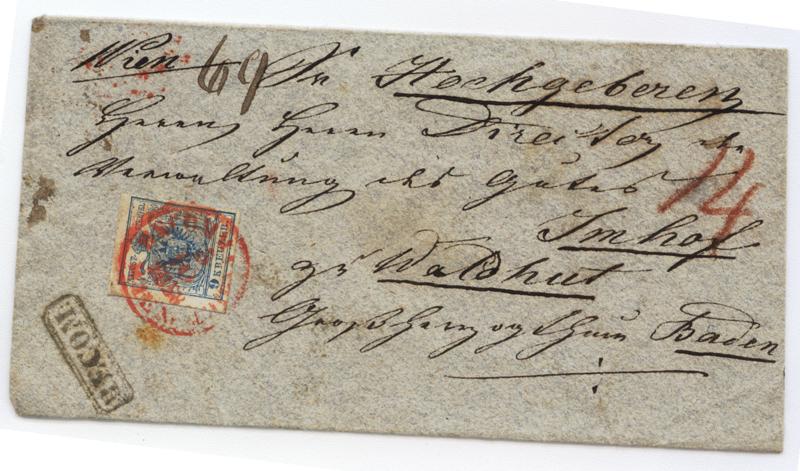 Wien 69 Sr Hochgeboren
Herrn Herrn Director der
Verwaltung des Gutes
14
Imhof
zu Waldhut
Großherzogthum Baden
9 KREUZER
RECOM